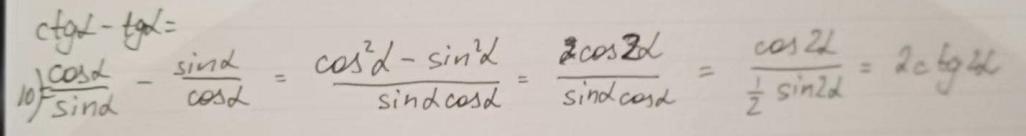 ctgα - tgα =
10) = cosα/sinα - sinα/cosα = (cos²α - sin²α)/(sinα cosα) = 2cos2α/(sinα cosα) = cos2α/(½ sin2α) = 2ctg2α